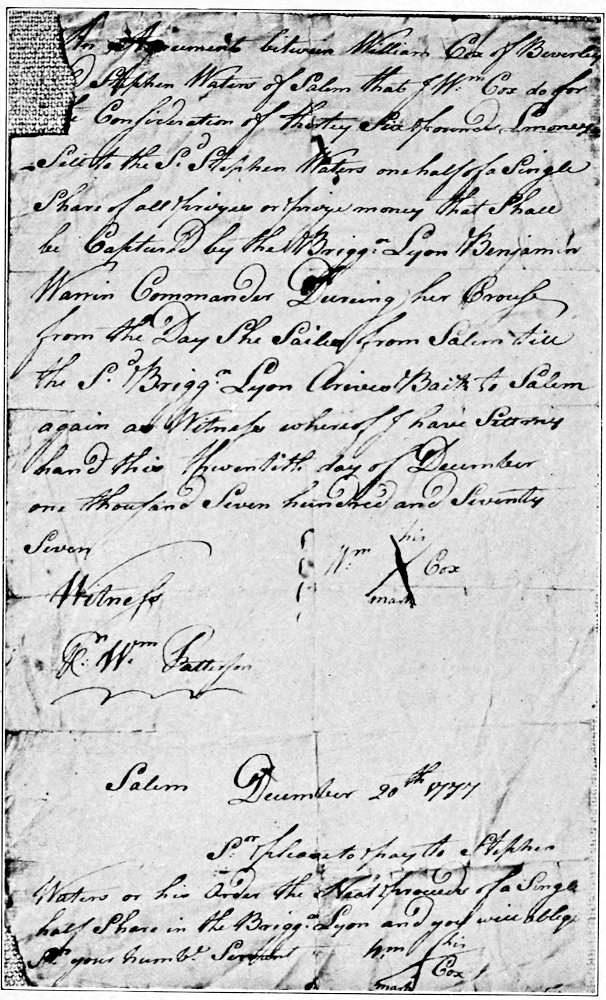 An Agreement between William Cox of Beverley
Stephen Waters of Salem that I Wm Cox do for
Consideration of thirtey Six pounds Lmoney
Sill to the Sd Stephen Waters one half of a Single
Share of all prizes or prize money that Shall
be Captured by the Briggn Lyon Benjamin
Warrin Commander Dureing her Crouse
from the Day She Sailes from Salem till
the Sd Briggn Lyon Arives Back to Salem
again as Witness whereof I have Sett my
hand this twentieth day of December
one thousand Seven hundred and Seventy
Seven
his
Wm X Cox
mark
Witness
Wm Patterson
Salem December 20th 1777
Sr please to pay to Stephen
Waters or his Order the Neat proceeds of a Single
half Share in the Briggn Lyon and you will oblige
Sr your humbl Servant
his
Wm X Cox
mark